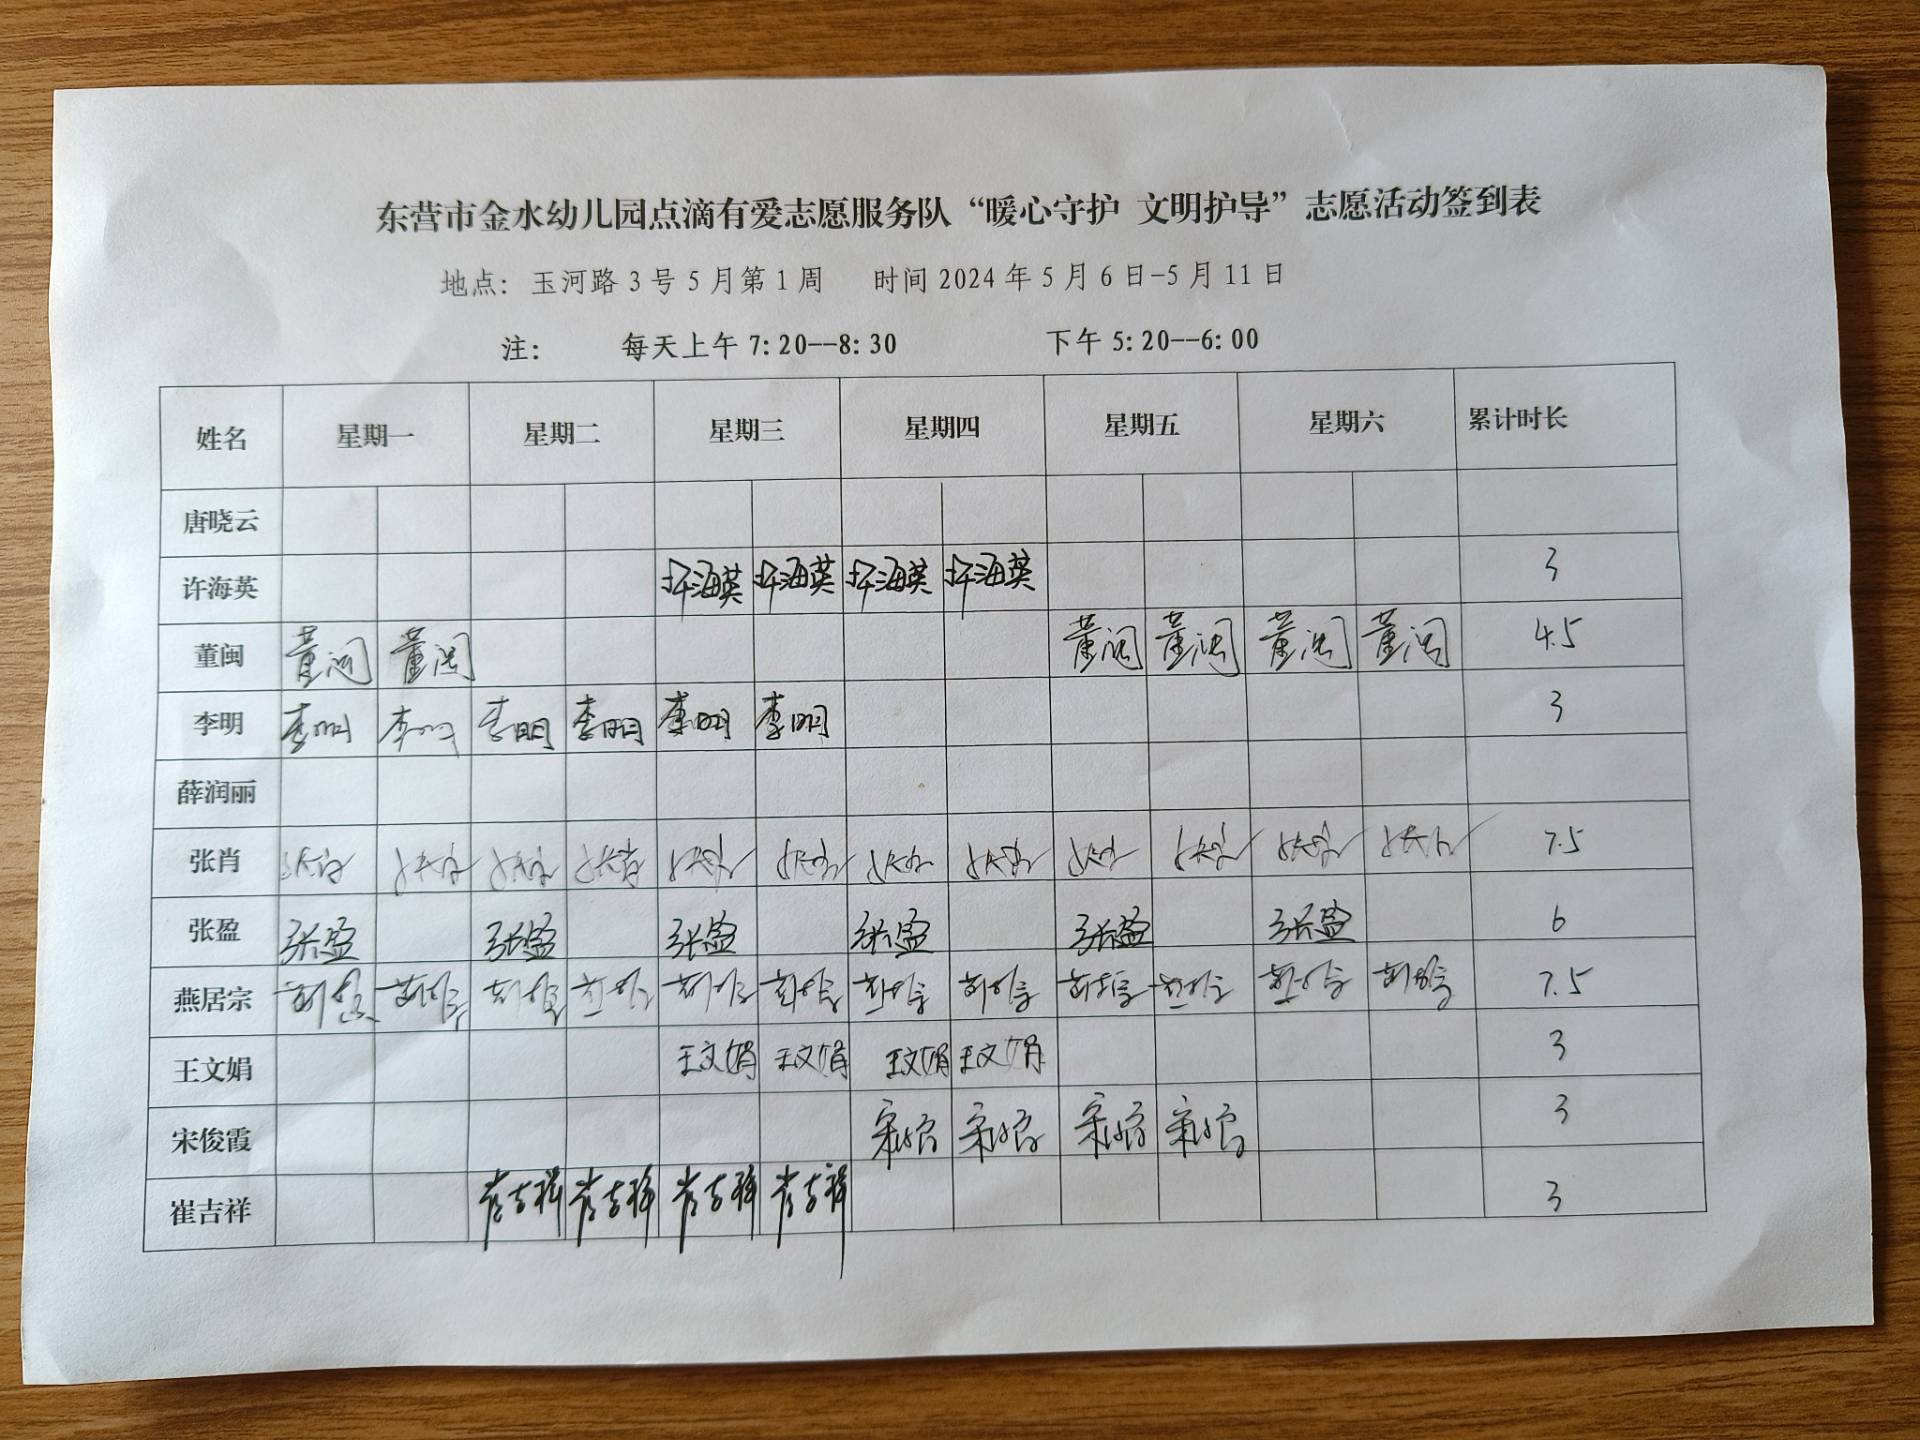 东营市金水幼儿园点滴有爱志愿服务队“暖心守护 文明护导”志愿活动签到表
地点：玉河路3号5月第1周 时间2024年5月6日-5月11日
注： 每天上午7:20--8:30 下午5:20--6:00
姓名 星期一 星期二 星期三 星期四 星期五 星期六 累计时长
唐晓云
许海英 许海英 许海英 许海英 许海英 3
董闽 董闽 董闽 董闽 董闽 董闽 董闽 4.5
李明 李明 李明 李明 李明 李明 李明 3
薛润丽
张肖 7.5
张盈 张盈 张盈 张盈 张盈 张盈 张盈 6
燕居宗 7.5
王文娟 王文娟 王文娟 王文娟 王文娟 3
宋俊霞 3
崔吉祥 崔吉祥 崔吉祥 崔吉祥 崔吉祥 3